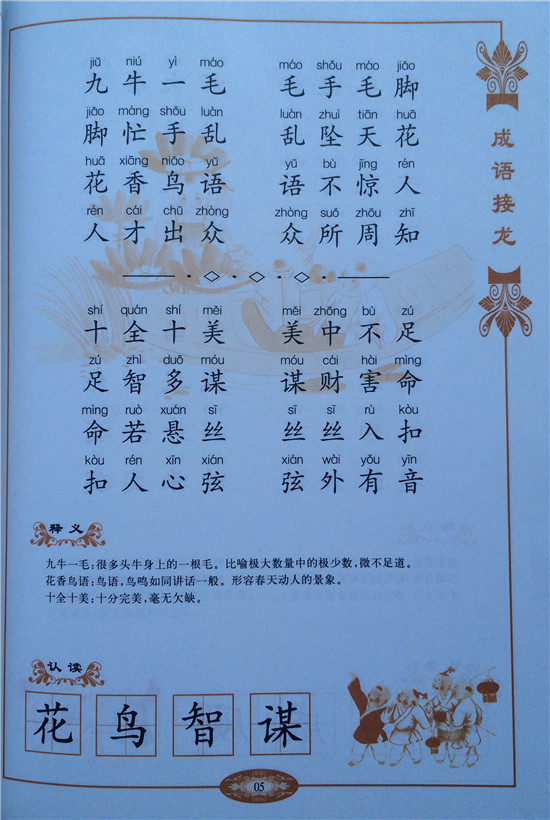 jiǔ niú yì máo máo shǒu máo jiǎo
九牛一毛 毛手毛脚
jiǎo máng shǒu luàn luàn zhuì tiān huā
脚忙手乱 乱坠天花
huā xiāng niǎo yǔ yǔ bù jīng rén
花香鸟语 语不惊人
rén cái chū zhòng zhòng suǒ zhōu zhī
人才出众 众所周知
shí quán shí měi měi zhōng bù zú
十全十美 美中不足
zú zhì duō móu móu cái hài mìng
足智多谋 谋财害命
mìng ruò xuán sī sī sī rù kòu
命若悬丝 丝丝入扣
kòu rén xīn xián xián wài yǒu yīn
扣人心弦 弦外有音
成语接龙
释义
九牛一毛:很多头牛身上的一根毛。比喻极大数量中的极少数,微不足道。
花香鸟语:鸟语,鸟鸣如同讲话一般。形容春天动人的景象。
十全十美:十分完美,毫无欠缺。
认读
花鸟智谋
05